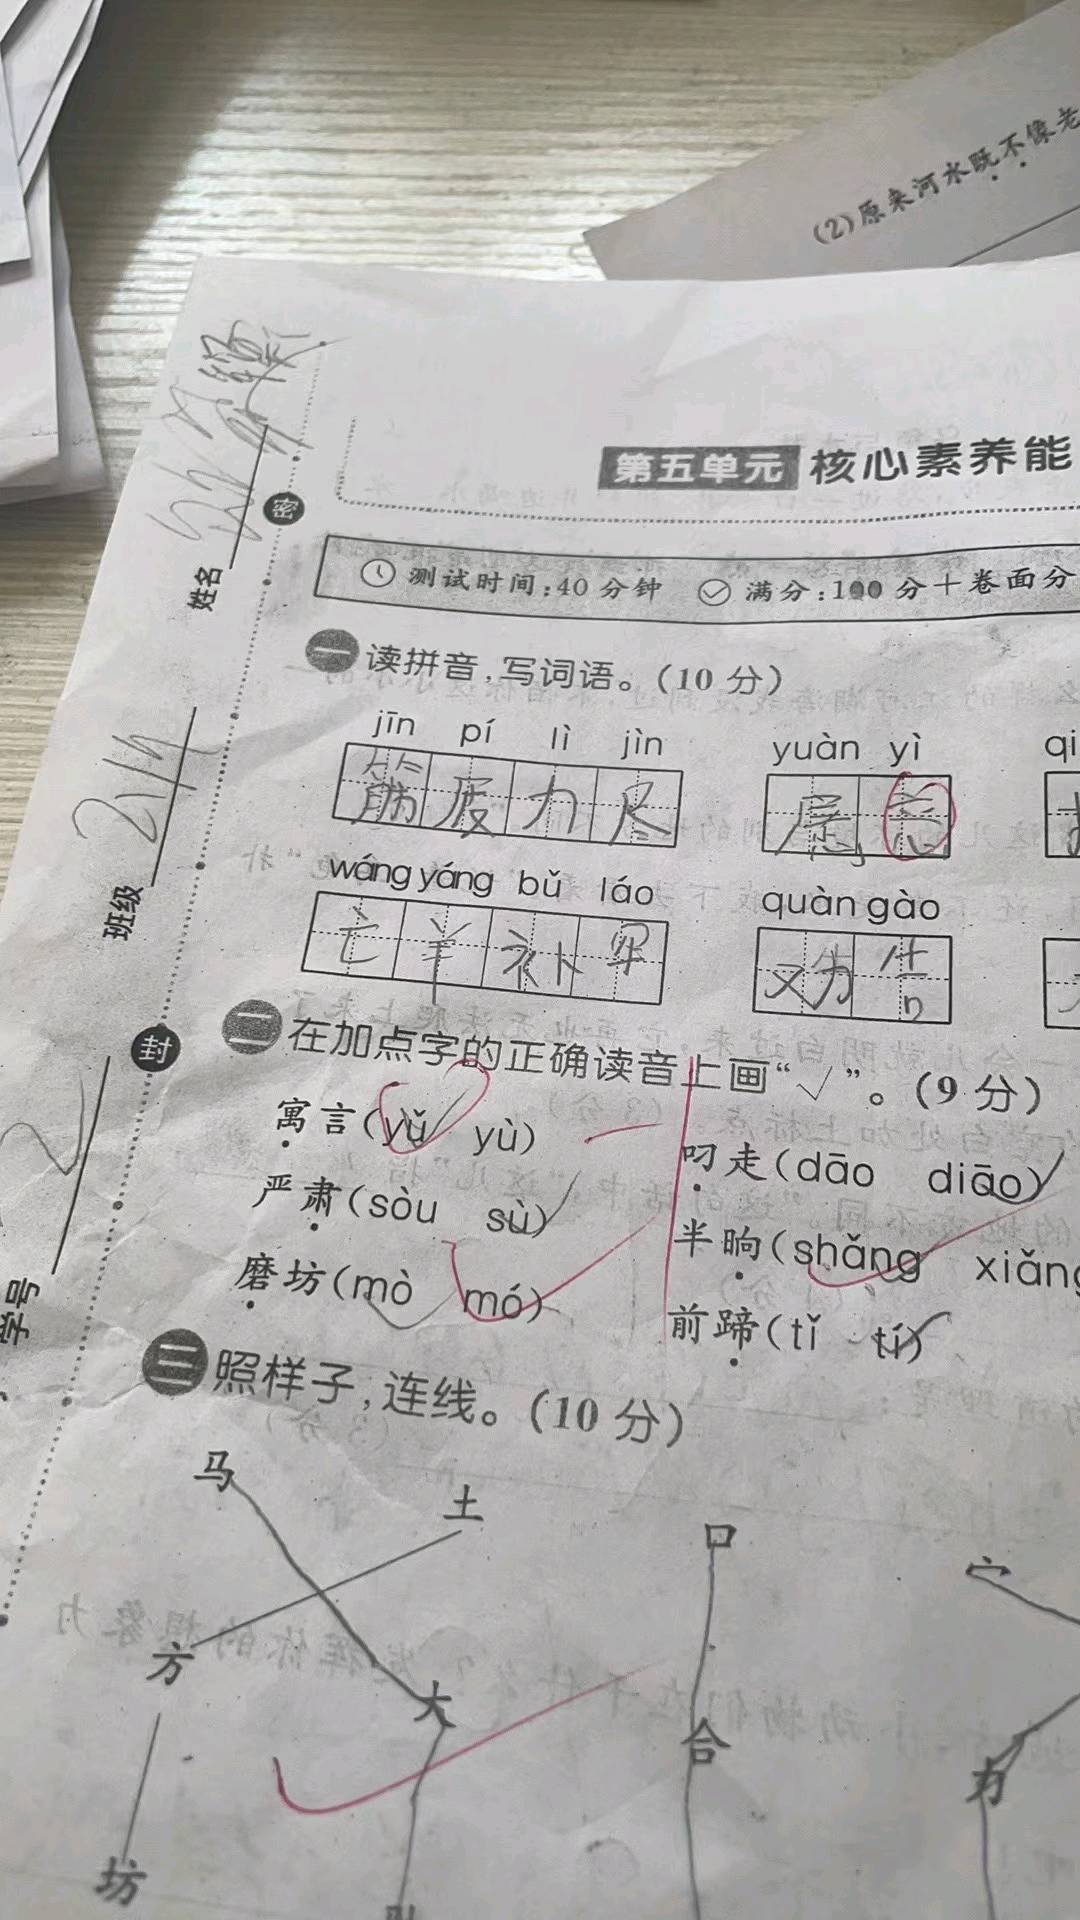 (2)原来河水既不像老
第五单元 核心素养能
测试时间:40分钟 满分:100分+卷面分
姓名
密
班级 2.14
封
学号 2
一 读拼音,写词语。(10分)
jīn pí lì jìn yuàn yì qi
筋疲力尽 愿意
wáng yáng bǔ láo quàn gào
亡羊补牢 劝告
二 在加点字的正确读音上画“√”。(9分)
寓言(yǔ yù) 叼走(dāo diāo)
严肃(sòu sù) 半晌(shǎng xiǎng
磨坊(mò mó) 前蹄(tǐ tí)
三 照样子,连线。(10分)
马 土 口 宀
方 大 合 力
坊